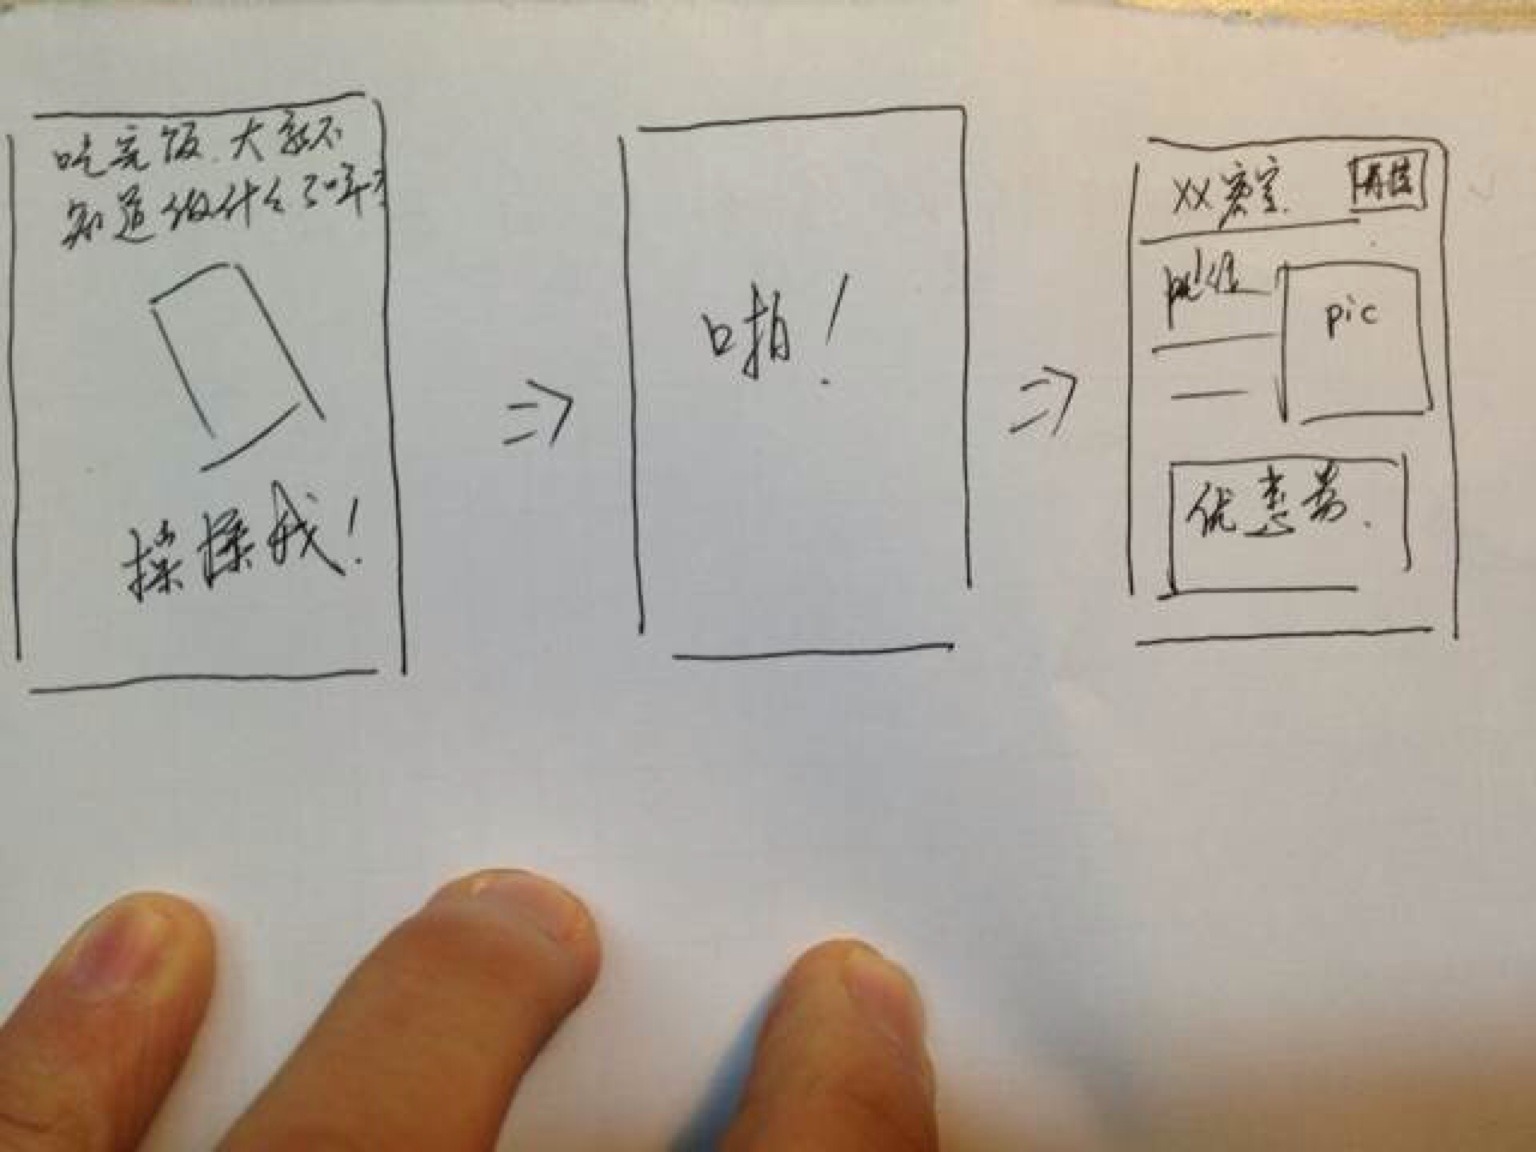 吃完饭,大家不
知道做什么了吧?
操操我!
啪!
XX密室
再摇
地址
pic
优惠券.